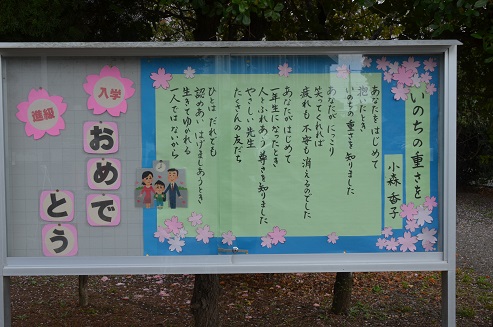 いのちの重さを
小森 香子
あなたを はじめて
抱いたとき
いのちの重さを 知りました
あなたが にっこり
笑ってくれれば
疲れも 不安も 消えるのでした
あなたが はじめて
一年生になったとき
人とふれあう 尊さを知りました
やさしい 先生
たくさんの 友だち
ひとは だれでも
認めあい はげましあうとき
生きてゆかれる
一人では ないから
入学
進級
おめで
とう